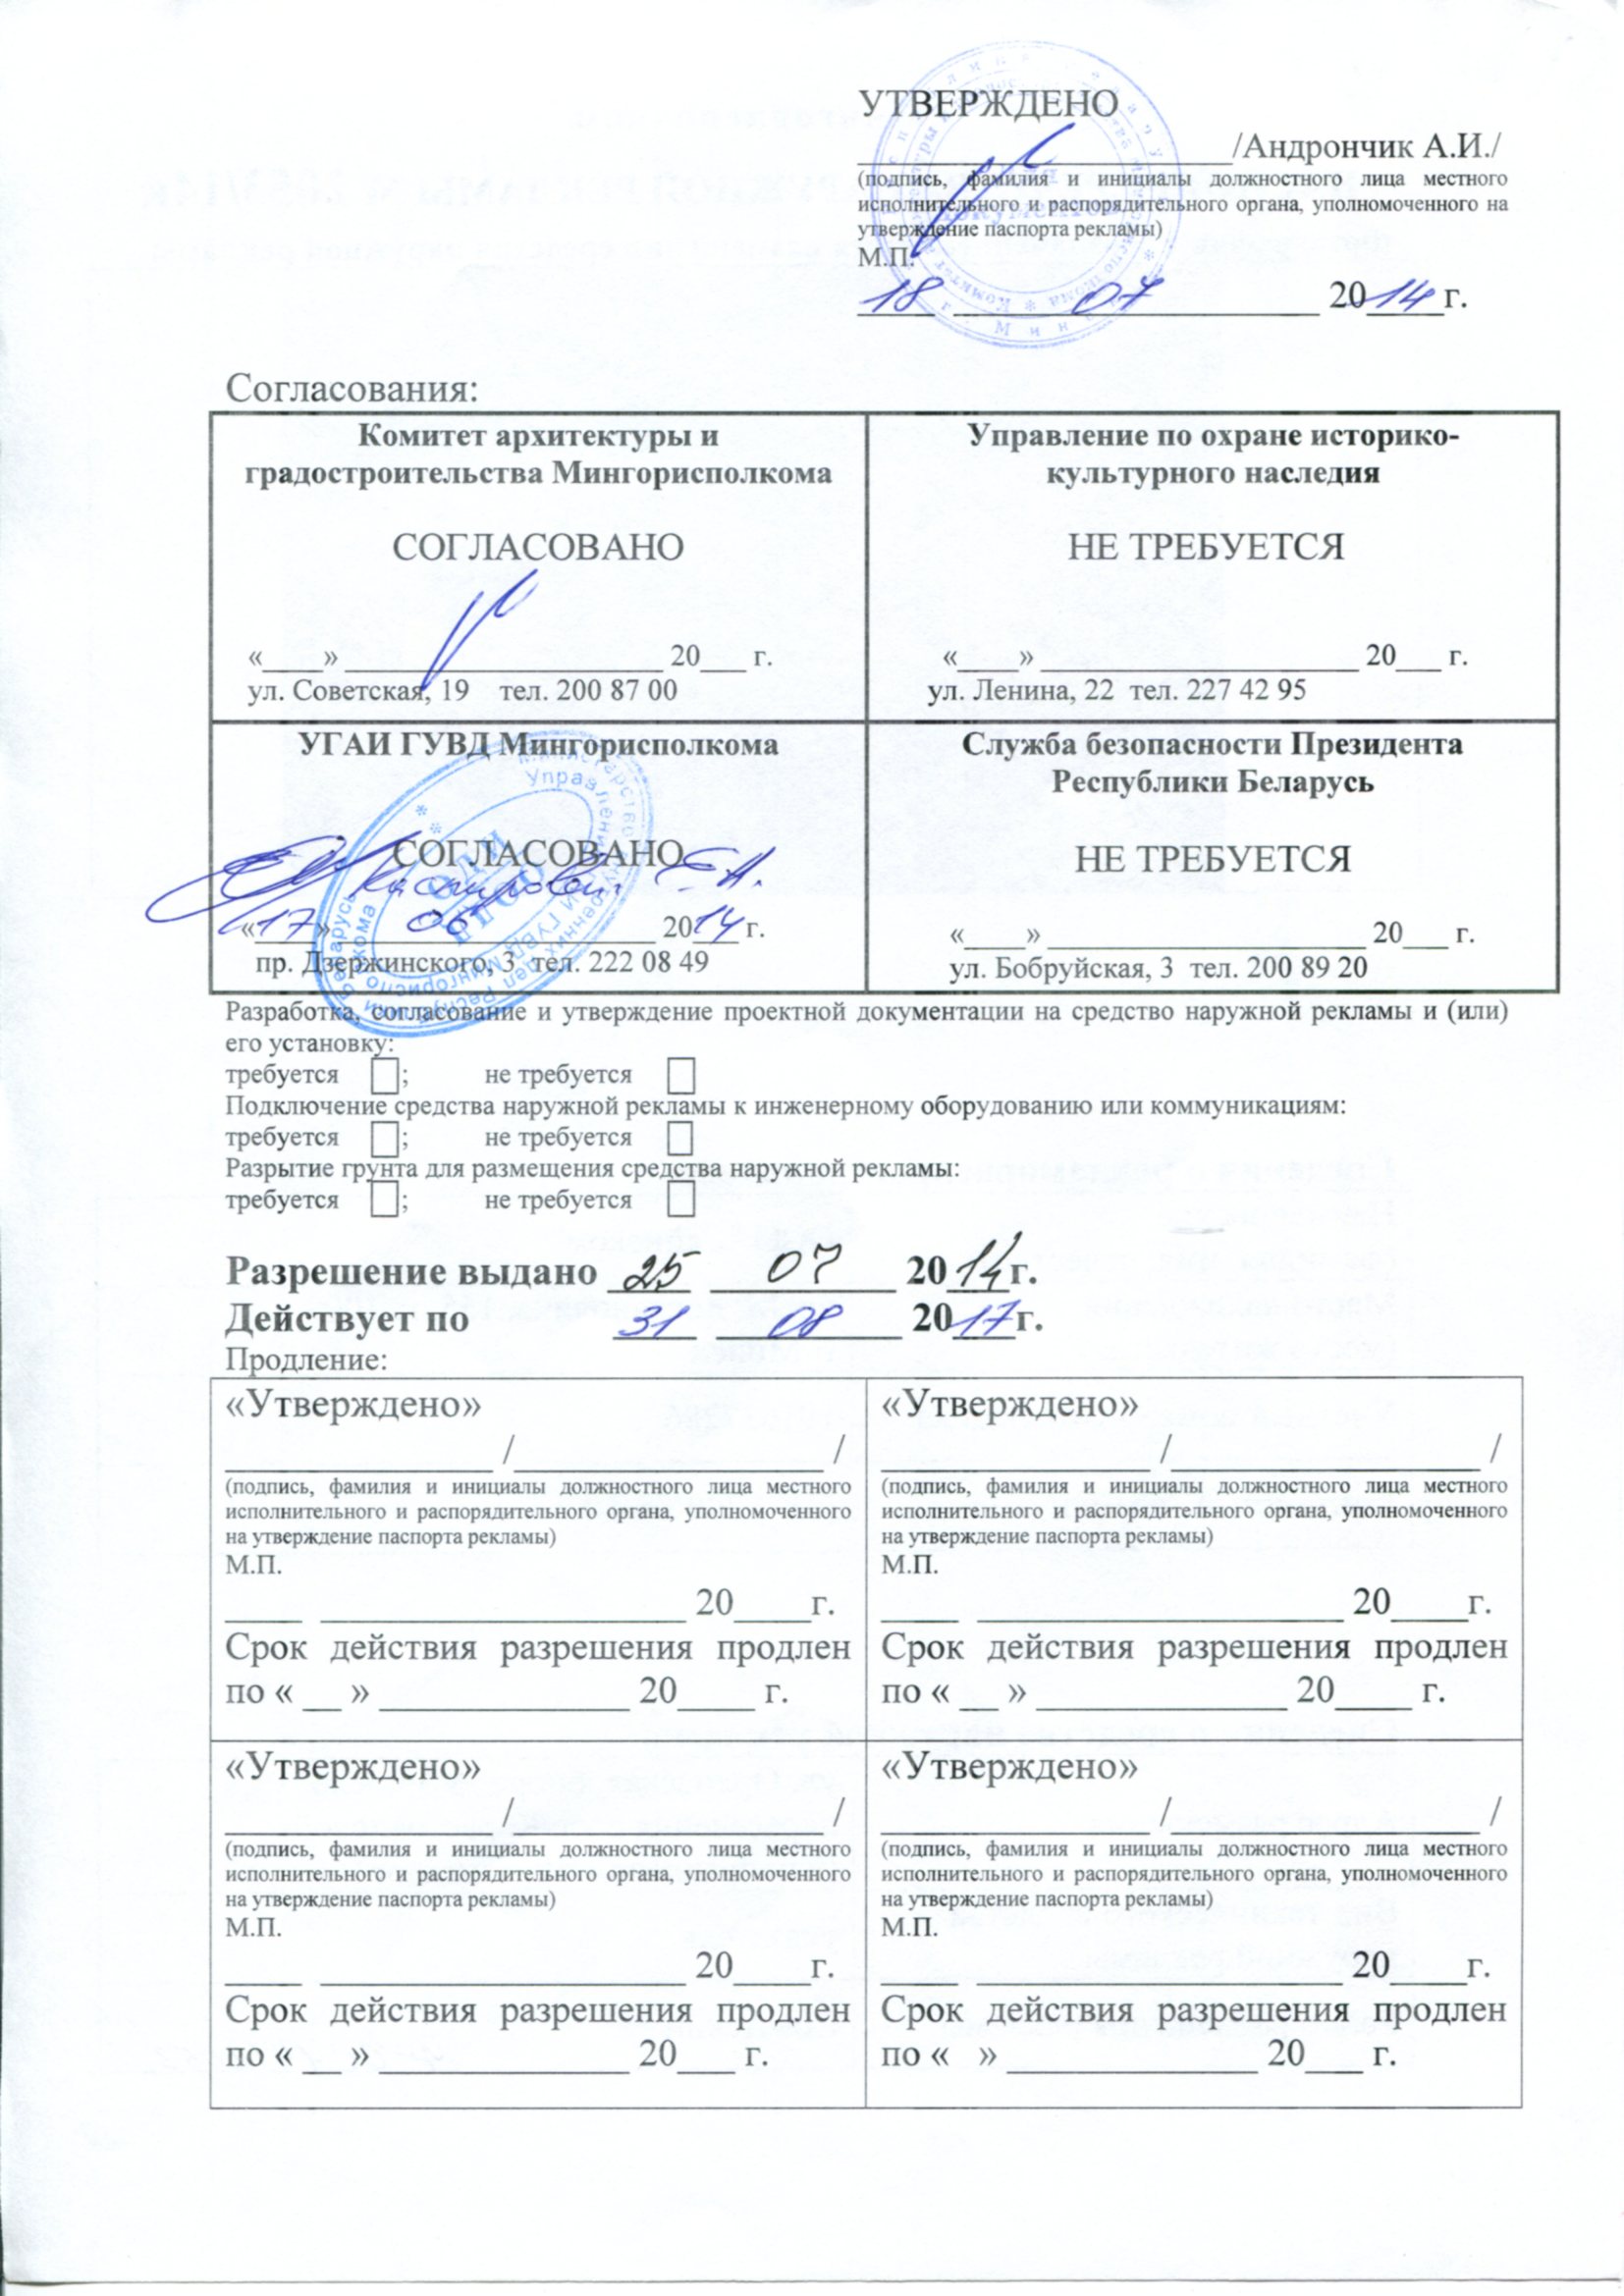 УТВЕРЖДЕНО
____________________/Андрончик А.И./
(подпись, фамилия и инициалы должностного лица местного
исполнительного и распорядительного органа, уполномоченного на
утверждение паспорта рекламы)
М.П.
18 07 2014г.
Согласования:
Комитет архитектуры и
градостроительства Мингорисполкома
СОГЛАСОВАНО
«____» _____________________ 20___ г.
ул. Советская, 19 тел. 200 87 00
Управление по охране историко-
культурного наследия
НЕ ТРЕБУЕТСЯ
«____» _____________________ 20___ г.
ул. Ленина, 22 тел. 227 42 95
УГАИ ГУВД Мингорисполкома
СОГЛАСОВАНО
«17» 06 2014 г.
пр. Дзержинского, 3 тел. 222 08 49
Служба безопасности Президента
Республики Беларусь
НЕ ТРЕБУЕТСЯ
«____» _____________________ 20___ г.
ул. Бобруйская, 3 тел. 200 89 20
Разработка, согласование и утверждение проектной документации на средство наружной рекламы и (или)
его установку:
требуется ; не требуется
Подключение средства наружной рекламы к инженерному оборудованию или коммуникациям:
требуется ; не требуется
Разрытие грунта для размещения средства наружной рекламы:
требуется ; не требуется
Разрешение выдано 25 07 2014г.
Действует по 31 08 2017г.
Продление:
«Утверждено»
______________ /________________ /
(подпись, фамилия и инициалы должностного лица местного
исполнительного и распорядительного органа, уполномоченного
на утверждение паспорта рекламы)
М.П.
____ ___________________ 20____г.
Срок действия разрешения продлен
по « __ » _____________ 20____ г.
«Утверждено»
______________ /________________ /
(подпись, фамилия и инициалы должностного лица местного
исполнительного и распорядительного органа, уполномоченного
на утверждение паспорта рекламы)
М.П.
____ ___________________ 20____г.
Срок действия разрешения продлен
по « __ » _____________ 20____ г.
«Утверждено»
______________ /________________ /
(подпись, фамилия и инициалы должностного лица местного
исполнительного и распорядительного органа, уполномоченного
на утверждение паспорта рекламы)
М.П.
____ ___________________ 20____г.
Срок действия разрешения продлен
по « __ » _____________ 20___ г.
«Утверждено»
______________ /________________ /
(подпись, фамилия и инициалы должностного лица местного
исполнительного и распорядительного органа, уполномоченного
на утверждение паспорта рекламы)
М.П.
____ ___________________ 20____г.
Срок действия разрешения продлен
по « » _____________ 20___ г.